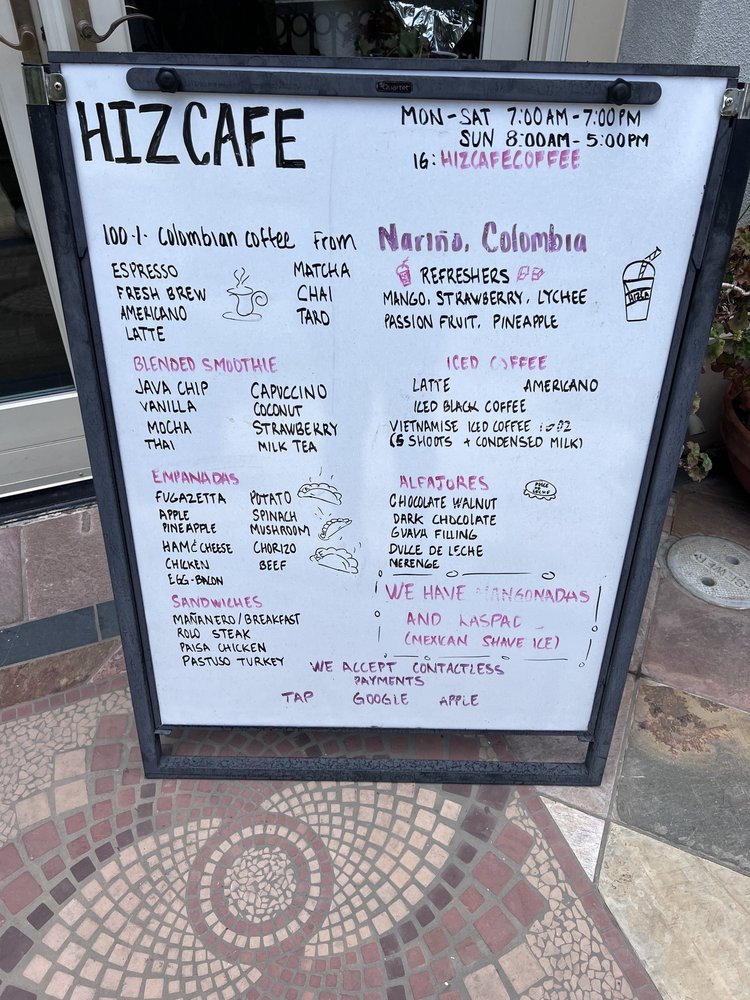 Quartet
HIZCAFE
MON-SAT 7:00AM-7:00PM
SUN 8:00AM-5:00PM
IG: HIZCAFECOFFEE
100% Colombian Coffee From Nariño, Colombia
ESPRESSO
FRESH BREW
AMERICANO
LATTE
MATCHA
CHAI
TARO
REFRESHERS
MANGO, STRAWBERRY, LYCHEE
PASSION FRUIT, PINEAPPLE
HIZCA
BLENDED SMOOTHIE
JAVA CHIP
VANILLA
MOCHA
THAI
CAPUCCINO
COCONUT
STRAWBERRY
MILK TEA
ICED COFFEE
LATTE AMERICANO
ICED BLACK COFFEE
VIETNAMISE ICED COFFEE
(5 SHOOTS + CONDENSED MILK)
EMPANADAS
FUGAZETTA
APPLE
PINEAPPLE
HAM & CHEESE
CHICKEN
EGG-BACON
POTATO
SPINACH
MUSHROOM
CHORIZO
BEEF
ALFAJORES
CHOCOLATE WALNUT
DARK CHOCOLATE
GUAVA FILLING
DULCE DE LECHE
MERENGE
DULCE DE LECHE
SANDWICHES
MAÑANERO/BREAKFAST
ROLO STEAK
PAISA CHICKEN
PASTUSO TURKEY
WE HAVE MANGONADAS
AND
(MEXICAN SHAVE ICE)
WE ACCEPT CONTACTLESS
PAYMENTS
TAP GOOGLE APPLE
SEWER